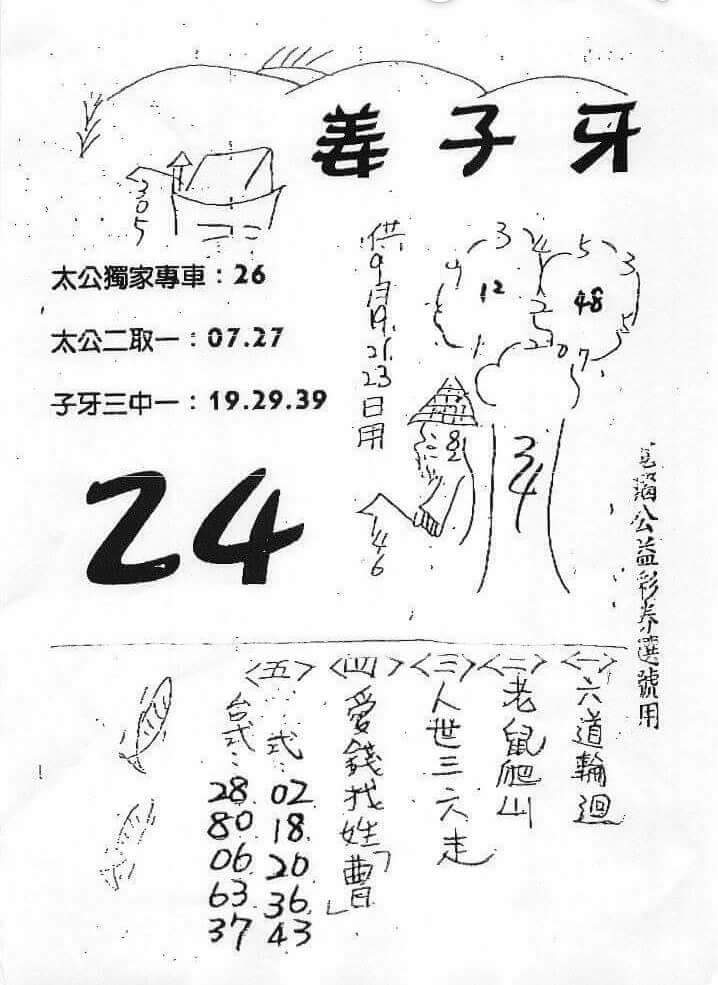 姜子牙
305
太公獨家專車：26
太公二取一：07.27
子牙三中一：19.29.39
24
供9月19.21.23日用
12
48
82
34
146
公益彩券選號用
<一>六道輪迴
<二>老鼠爬山
<三>人世三六走
<四>愛錢找姓「曹」
<五>
式：02 18 20 36 43
台式：28 80 06 63 37